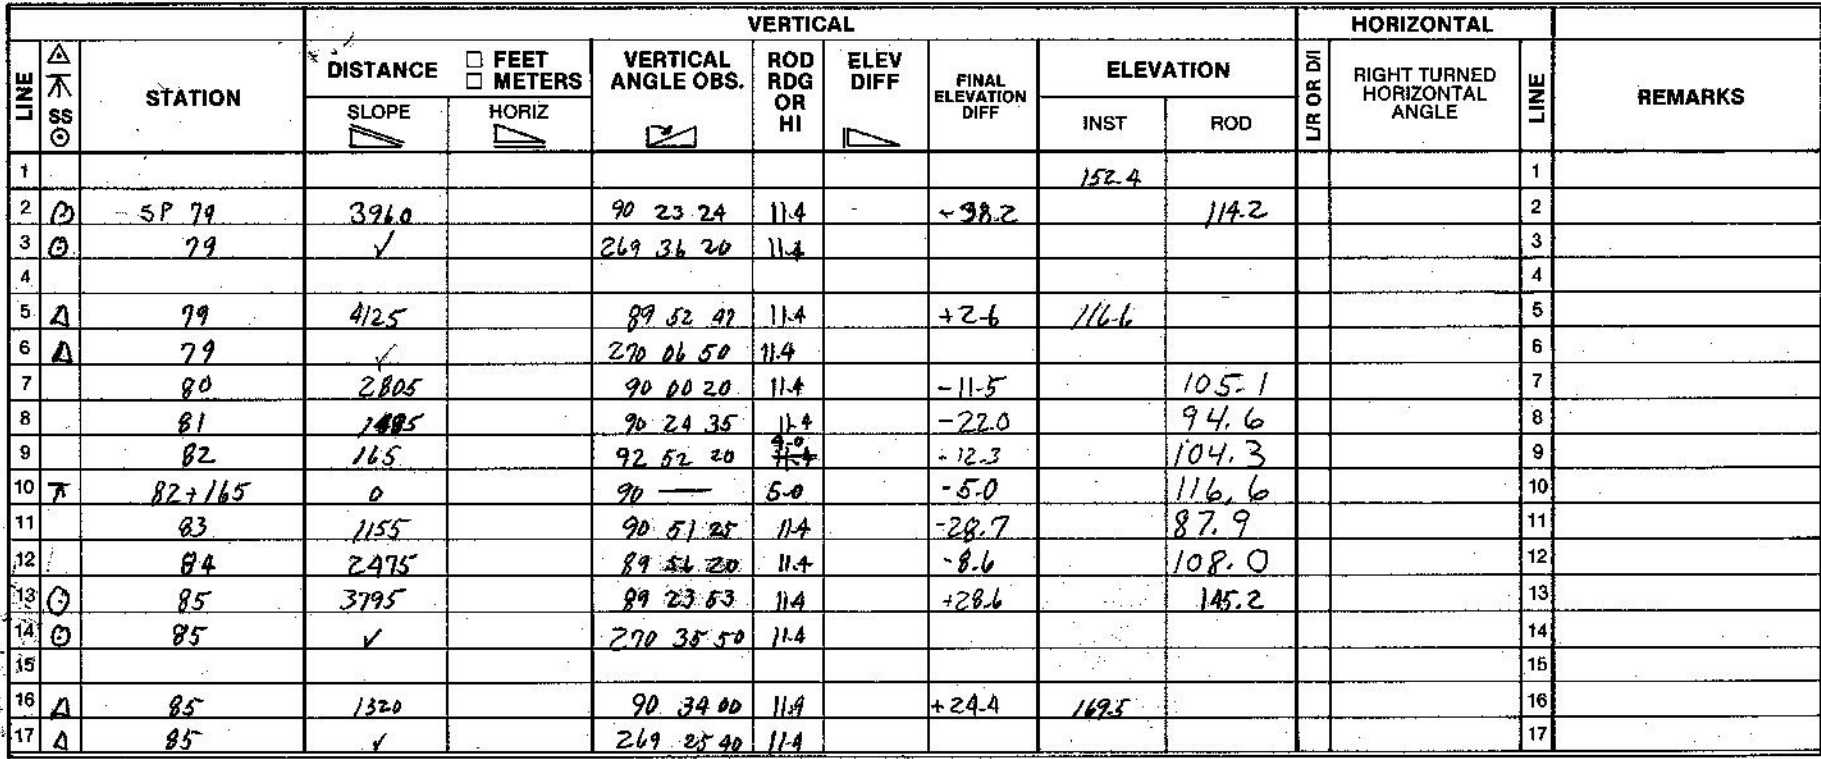 VERTICAL HORIZONTAL
LINE SS STATION DISTANCE □ FEET □ METERS SLOPE HORIZ VERTICAL ANGLE OBS. ROD RDG OR HI ELEV DIFF FINAL ELEVATION DIFF ELEVATION INST ROD L/R OR D/I RIGHT TURNED HORIZONTAL ANGLE LINE REMARKS
1 152.4 1
2 SP 79 3960 90 23 24 11.4 -38.2 114.2 2
3 79 ✓ 269 36 20 11.4 3
4 4
5 79 4125 89 52 47 11.4 +2.6 116.6 5
6 79 ✓ 270 06 50 11.4 6
7 80 2805 90 00 20 11.4 -11.5 105.1 7
8 81 90 24 35 11.4 -22.0 94.6 8
9 82 165 92 52 20 9.0 -12.3 104.3 9
10 82+165 0 90 — 5.0 -5.0 116.6 10
11 83 1155 90 51 25 11.4 -28.7 87.9 11
12 84 2475 89 56 20 11.4 -8.6 108.0 12
13 85 3795 89 23 53 11.4 +28.6 145.2 13
14 85 ✓ 270 35 50 11.4 14
15 15
16 85 1320 90 34 00 11.4 +24.4 169.5 16
17 85 ✓ 269 25 40 11.4 17